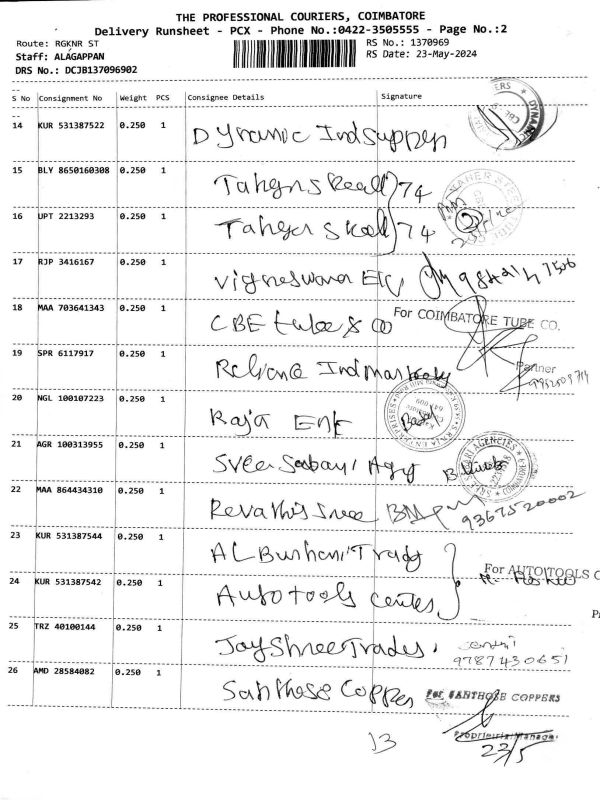 THE PROFESSIONAL COURIERS, COIMBATORE
Delivery Runsheet - PCX - Phone No.:0422-3505555 - Page No.:2
Route: RGKNR ST
RS No.: 1370969
Staff: ALAGAPPAN
RS Date: 23-May-2024
DRS No.: DCJB137096902
S No Consignment No Weight PCS Consignee Details Signature
14 KUR 531387522 0.250 1 Dynamic Ind suppen
15 BLY 8650160308 0.250 1 74
16 UPT 2213293 0.250 1 74
17 RJP 3416167 0.250 1 Vigneswara
18 MAA 703641343 0.250 1 CBE tube & co
For COIMBATORE TUBE CO.
19 SPR 6117917 0.250 1 Reliance Ind
Partner
20 NGL 100107223 0.250 1 Raja Ent
21 AGR 100313955 0.250 1 Sree Sabari Agy
22 MAA 864434310 0.250 1 Revathi Sree
9367520002
23 KUR 531387544 0.250 1 AL Burhani Tradg
For AUTO TOOLS C
24 KUR 531387542 0.250 1 Auto tools Center
25 TRZ 40100144 0.250 1 Jay Shree Trades
9787430651
26 AMD 28584082 0.250 1 Santhose Copper
For SANTHOSE COPPERS
Proprietrix/Manager
23/5
13